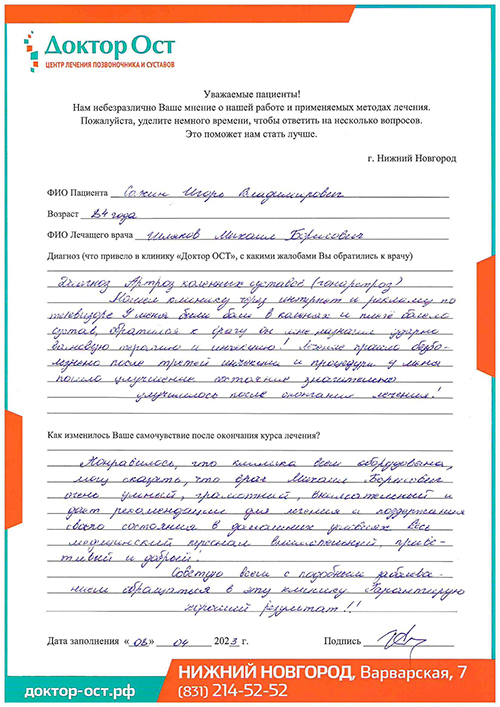 Доктор Ост
ЦЕНТР ЛЕЧЕНИЯ ПОЗВОНОЧНИКА И СУСТАВОВ
Уважаемые пациенты!
Нам небезразлично Ваше мнение о нашей работе и применяемых методах лечения.
Пожалуйста, уделите немного времени, чтобы ответить на несколько вопросов.
Это поможет нам стать лучше.
г. Нижний Новгород
ФИО Пациента Сажин Игорь Владимирович
Возраст 54 года
ФИО Лечащего врача Шляков Михаил Борисович
Диагноз (что привело в клинику «Доктор ОСТ», с какими жалобами Вы обратились к врачу)
Диагноз Артроз коленных суставов (гонартроз)
Нашел клинику через интернет и рекламу по
телевизору У меня были боли в коленях и плече болело
сустав, обратился к врачу он мне назначил ударно
волновую терапию и инъекцию! Лечение прошло безбо-
лезненно после третьей инъекции и процедуры у меня
пошло улучшение состояние значительно
улучшилось после окончания лечения!
Как изменилось Ваше самочувствие после окончания курса лечения?
Понравилось, что клиника всем оборудована,
могу сказать, что врач Михаил Борисович
очень умный, грамотный, внимательный и
дает рекомендации для лечения и поддержания
своего состояния в домашних условиях Весь
медицинский персонал внимательный, приве-
тливый и добрый!
Советую всем с подобным заболева-
нием обращаться в эту клинику Гарантирую
хороший результат!!
Дата заполнения «06» 04 2023 г. Подпись
НИЖНИЙ НОВГОРОД, Варварская, 7
доктор-ост.рф (831) 214-52-52